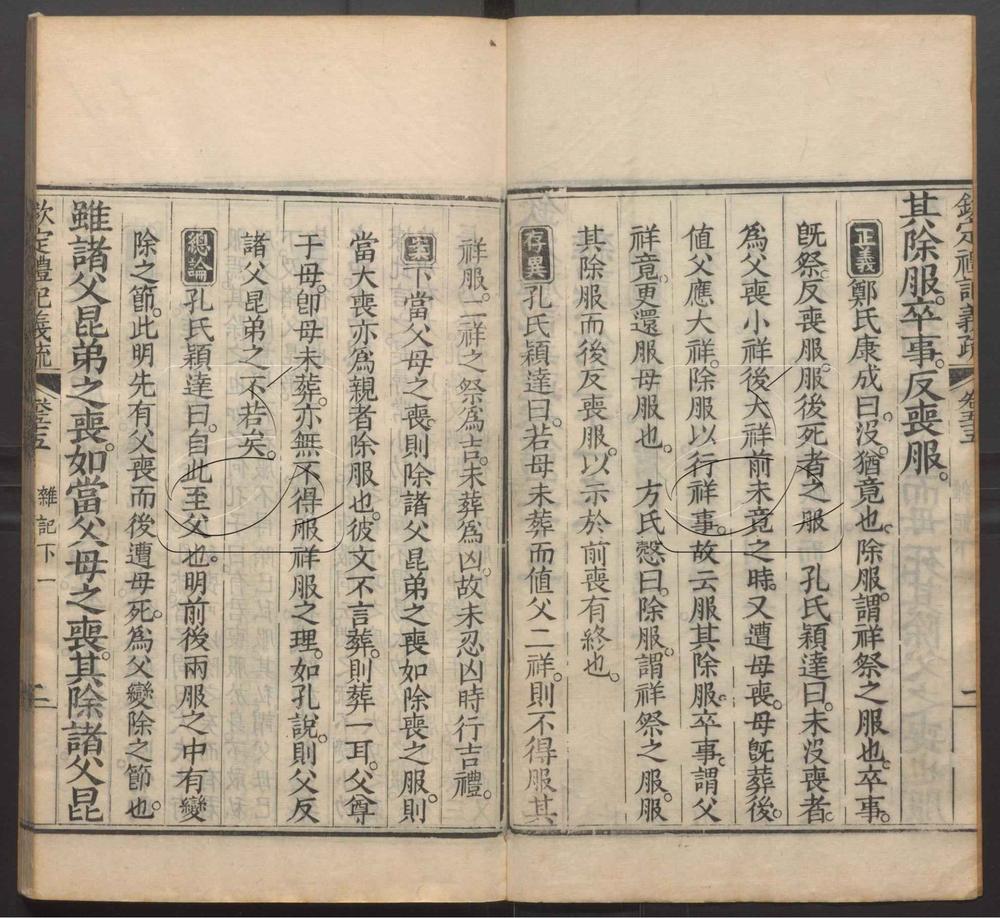 欽定禮記義疏 卷五十五
其除服卒事反喪服。
正義 鄭氏康成曰。沒。猶竟也。除服。謂祥祭之服也。卒事。
既祭。反喪服。服後死者之服。 孔氏穎達曰。未沒喪者。
為父喪小祥後大祥前未竟之時。又遭母喪。母既葬後。
值父應大祥。除服以行祥事。故云服其除服。卒事謂父
祥竟。更還服母服也。 方氏慤曰。除服。謂祥祭之服。服
其除服而後反喪服。以示於前喪有終也。
存異 孔氏穎達曰。若母未葬而值父二祥。則不得服其
祥服。二祥之祭為吉。未葬為凶。故未忍凶時行吉禮。
案 下當父母之喪。則除諸父昆弟之喪如除喪之服。則
當大喪亦為親者除服也。彼文不言葬。則葬一耳。父尊
于母。卽母未葬。亦無不得服祥服之理。如孔說。則父反
諸父昆弟之不若矣。
總論 孔氏穎達曰。自此至父也。明前後兩服之中有變
除之節。此明先有父喪而後遭母死。為父變除之節也。
雖諸父昆弟之喪。如當父母之喪。其除諸父昆
欽定禮記義疏 卷五十五 雜記下一 二